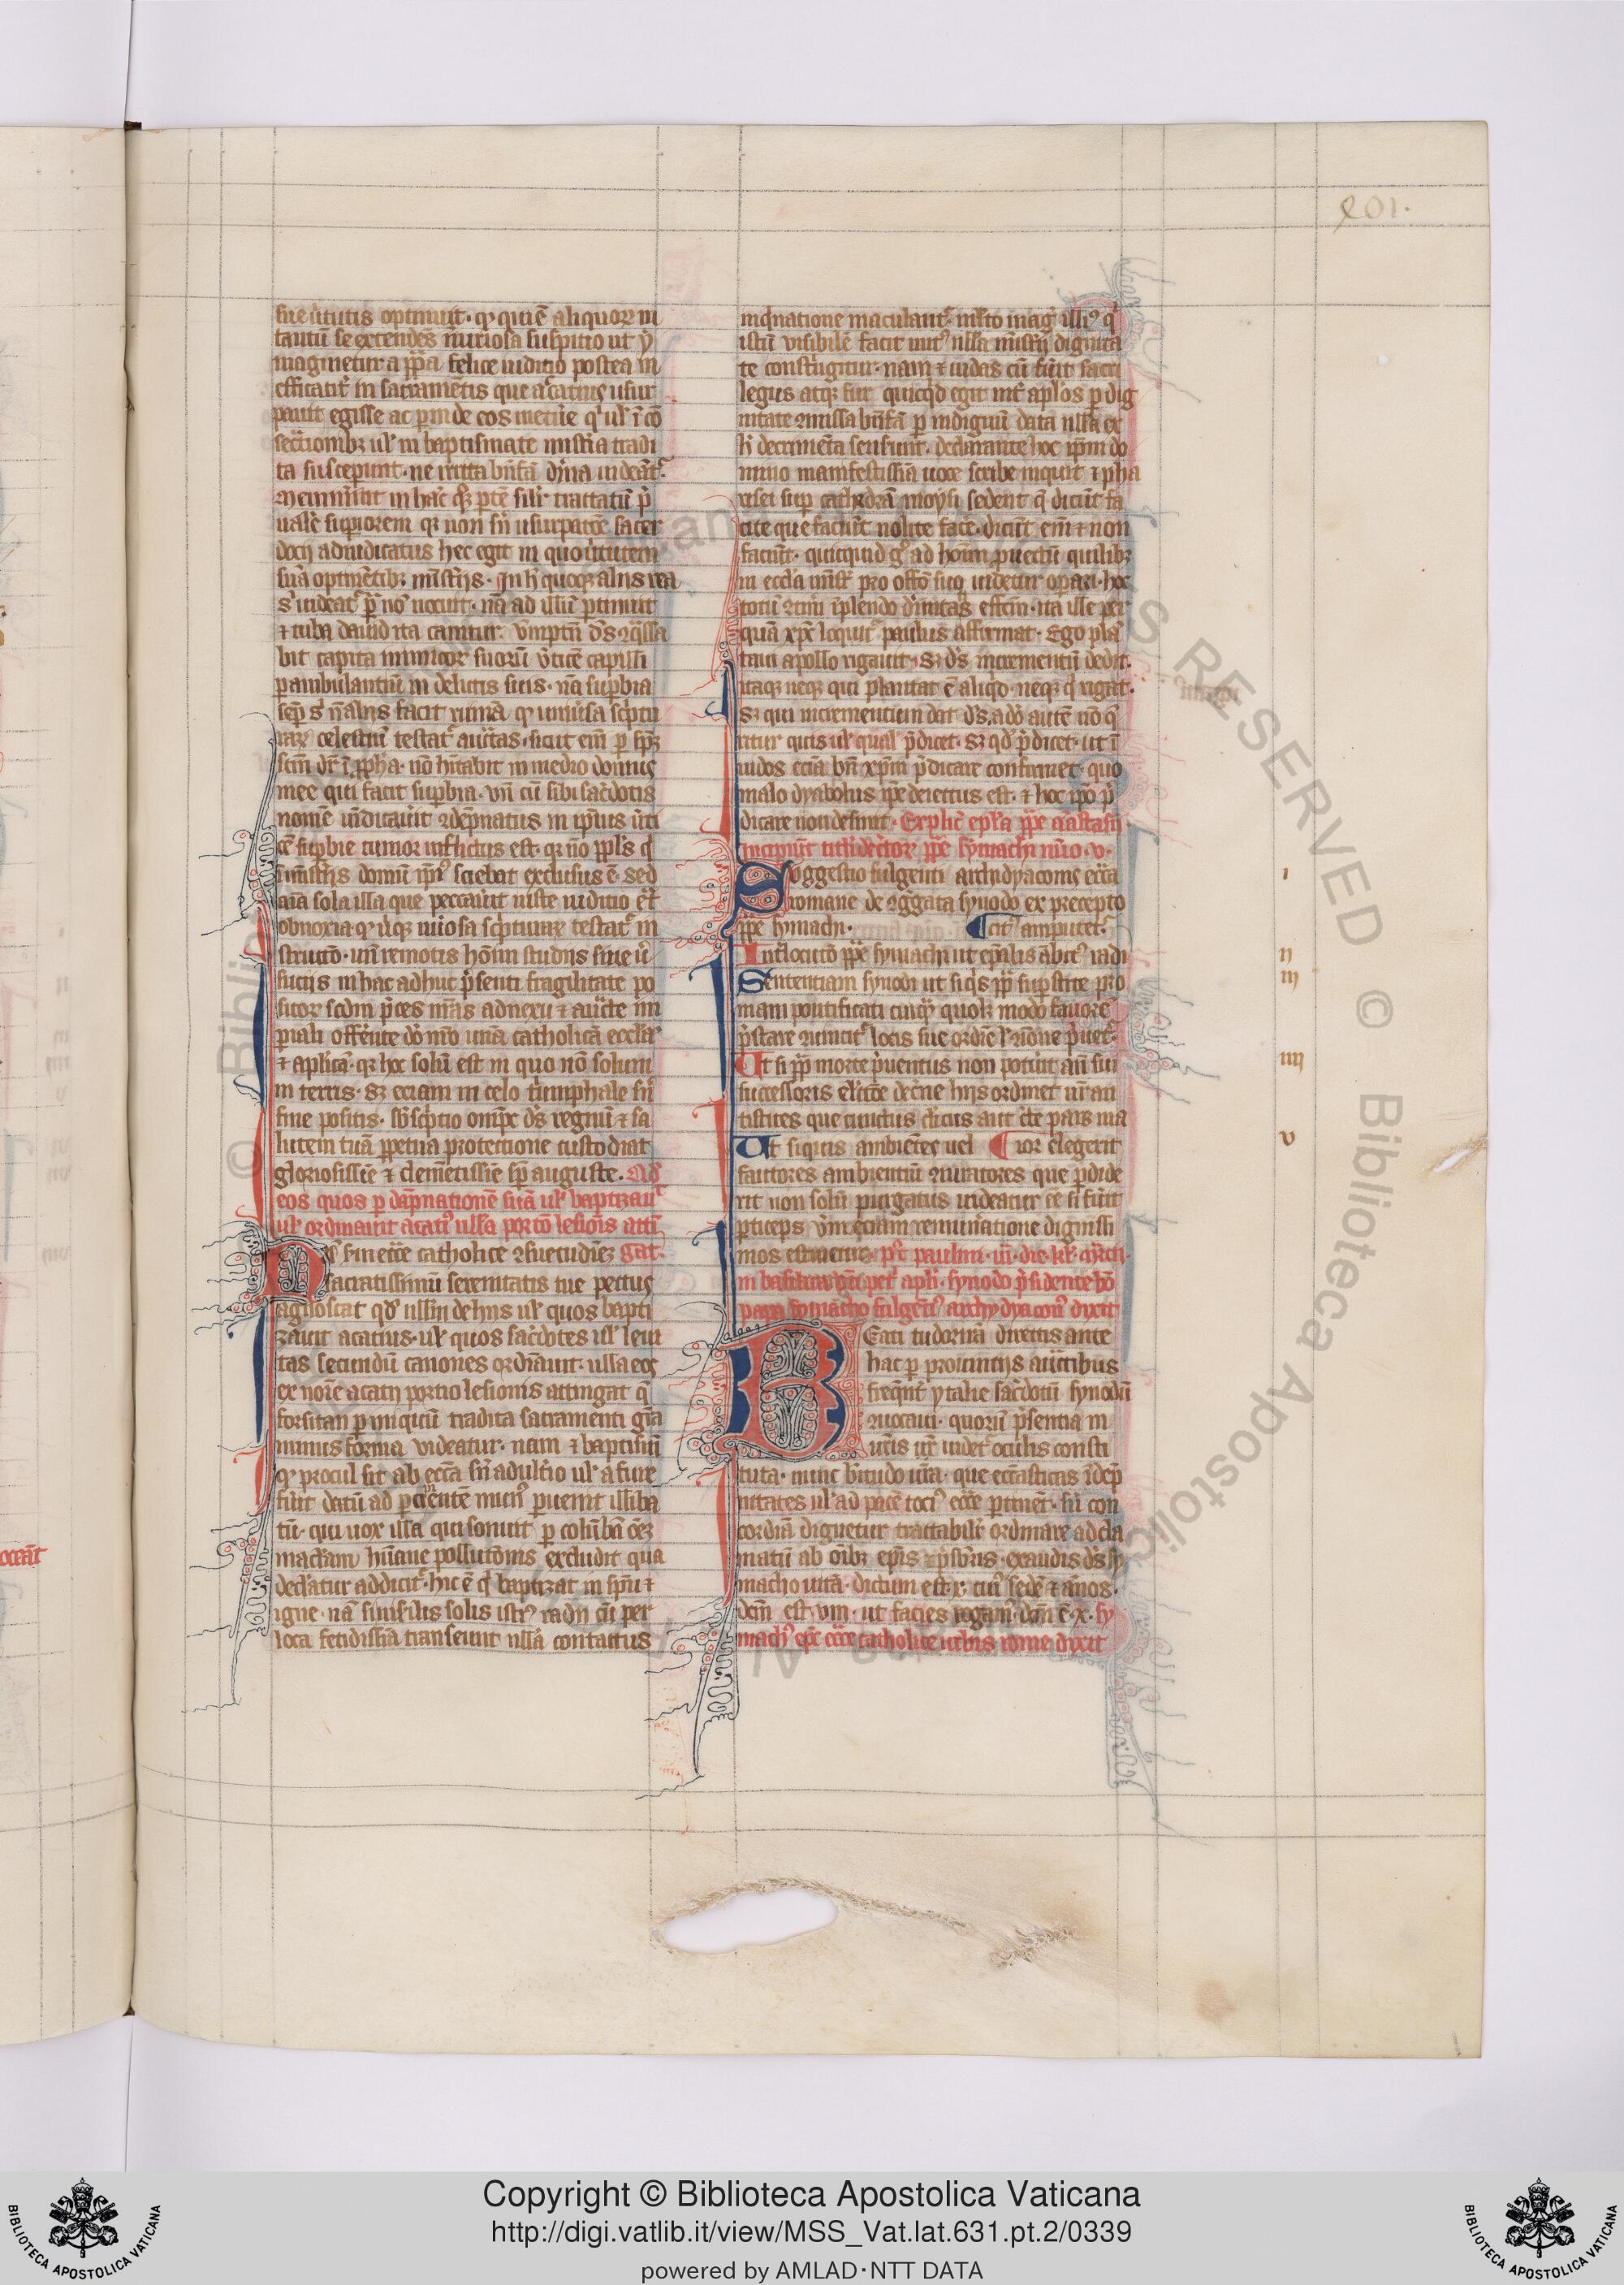 101.
sue ututis optinuit · qͥ quiē aliquoꝝ in
tantū se extendēs curiosa suspitio ut y
maginetur a pp̄a felice iudicio postea in
efficacit̉ in sacramētis que acatius usur
pauit egisse ac ꝑinde eos metuere qͥ ul' ī cō
secͣtionibꝫ ul' in baptismate mistia tradi
ta susceperunt · ne irrita bn̄fia diuina uideāt̉
meminerint in hac qͦꝫ ꝑte sili tractatū p̉
ualē supiorem qꝛ non sñ usurpatōe sacer
docij adiudicatus hec egit in quo ututem
suā optinētibꝫ misterijs · In h̉ quoqꝫ alijs rea
s' uideat̉ ꝑ nō nocuit · nā ad illum ꝑtinuit
⁊ tuba dauid ita canitur · Verūptn̄ ds ꝯq̄ssa
bit capita inimicoꝝ suorū u̓tice capilli
ꝑambulantiū in delictis suis · nā suꝑbia
semꝑ s' n̄ alijs facit ruinā qͥ uniu̓sa scͥptu
raꝝ celestiū testat̉ auc̄tas · sicut em̄ ꝑ spm̄
scm̄ dr̄ ī ꝓpha · nō hītabit in medio domus
mee qui facit suꝑbiā · vn̄ cū sibi sac̉dotis
nomē uīdicauit ꝯdēpnatus in ipius u̓ti
cē suꝑbie tumor inflictus est · qꝛ nō ppl's qͥ
ī mistijs donū ipīͥ sciebat exclusus ē · sed
aīa sola illa que peccauit iuste iudicio erat
obnoxia qͥ uͥqꝫ numosa scͥpturaꝝ testat̉ in
structō · vn̄ remotis hōīm studijs siue u̓
sucijs in hac adhuc p̉senti fragilitate po
sitoꝝ scdm p̄ces nr̄as adnexu ⁊ auc̄te im
ꝑiali offerente dō nr̄o unā catholicā ecclām
⁊ ap̄licā · qꝛ hoc solū est in quo nō solum
in terris · sꝫ eciam in celo triumphale sñ
fine positis · Subscͥptio om̄ps ds regnū ⁊ sa
lutem tuā ꝑpetua protectione custodiat
gloriosissīe ⁊ clemētissīe sp̄ auguste · Qd'
eos quos ꝑ dāpnationē suā ul' baptizau
ul' ordinauit acati9 ulla porto lesiōis atti
Nā scm̄ ecc̄e catholice ꝯsuetudinē gat ·
sacratissimū serenitatis tue pectus
agnoscat qd' ullīn de hijs ul' quos bapti
zauit acatius · ul' quos sac̉dotes ul' leui
tas secundū canones ordīauit · ulla eos
ex noīe acatij portio lesionis attingat qͥ
forsitan ꝑ iniquū tradita sacramenti gr̄a
minus forma videatur · nam ⁊ baptismū
qͥ procul sit ab ecc̄a sñ adult̓io ul' a fure
fu̓it datū ad ꝑcipientē mun9 ꝑuenit illiba
tū · qui uox illa qui sonuit ꝑ colūbā oēm
maclam hūane pollucōnis excludit qua
declaratur ac dicit̉ · hic ē qͥ baptizat in spu̓ ⁊
igne · nā si uisibilis solis isti9 radij cū per
loca fetidissīa transeunt ullā contactus
inqͥnatione maculant̉ · mlto mag' illi9 qͥ
istū visibilē facit uirt9 nulla mistrij dignita
te constringitur · nam ⁊ iudas cū fu̓it sacri
legus atqꝫ fur quicqͥd egit int̉ ap̄los ꝑ dig
nitate ꝯmissa bn̄fia ꝑ indignū data nulla ex
h̉ detrimēta senserunt · declarante hoc ip̄m do
mino manifestissīa uoce scribe inquit ⁊ pha
risei suꝑ cathedrā moysi sedent qͥ dicūt fa
cite que faciūt nolite face̓ · dicūt em̄ ⁊ non
faciūt · quicquid gͦ ad hoīm ꝓuectū quilibꝫ
in eccl'a ministͥ pro offō suo uidetur operari · hoc
totū ꝯtinēri īplendo diuinitatis effc̄m · ita ille per
quā xp̄c loquit̉ paulus affirmat · Ego plā
taui apollo rigauit sꝫ ds incrementū dedit ·
itaqꝫ neqꝫ qui plantat ē aliqͥd · neqꝫ qͥ rigat ·
sꝫ qui incrementum dat ds · adō autē nō qͥ
ritur quis ul' qual' p̉dicet · sꝫ qd' p̉dicet · ut ī
uidos eciā bn̄ xp̄m p̉dicare confirmet · quo
malo dyabolus ip̄e deiectus est · ⁊ hoc ip̄o p̉
dicare non desinit · Explic̄ ep̄la pp̄e anastasij
Incipiūt tituli decr̓toꝝ pp̄e symachi nūo · v ·
Suggestio fulgentij archidyaconis ecc̄a
romane de ꝯgg̉ata synodo ex precepto
pp̄e symachi · ¶ cit9 amputet̉
Int̉locutō pp̄e symachi ut ep̄alis ābit9 radi
Sententiam synodi ut siqͥs pp̄ suꝑstite pro
mam pontificati cuiqͥ quolꝫ modo fauorē
p̉stare ꝯuincit̉ locis sue ordīe l' ꝯ̄nōne p̉uet̉ ·
Ut si pp̄ morte p̉uentus non potu̓it an̄ sui
successoris elc̄ōe decr̄ne hijs ordinet ur̄an
tistites que cunctus cl̓icus aut cl̓ci pars ma
Ut siquis ambiētes uel ¶ ior elegerit
fautores ambientiū ꝯiuratores que prodide
rit non solū purgatus uideatur ēē si fu̓it
ꝑticeps Verūeciam remun̓atione dignissi
mos estimetur · pͦt paulini · ui · die · kl' · march ·
in basilica bt̄i petͥ apli · synodo p̉sidente bō
papa symacho fulgēti9 archydyacon9 dixit
Beati tudo urā directis ante
hac ꝑ prouincijs auc̄tibus
freqn̄t ytalie sac̉dotū synodū
ꝯuocaui · quorū p̉sentia in
uris ut uidet̉ oculis consti
tuta · nunc b̉titudo ur̄a · que ecc̄asticas īdep̄
nitates ul' ad pacē toci9 ecc̄e ꝑtinēt · siĩ con
cordiā dignetur tractabilē ordinare adcla
matū ab oībꝫ ep̄is ⁊ p̉sbr̄is · exaudi xp̄e sy
macho uitā · dictum est · x · cui9 sedē ⁊ annos ·
dcm̄ est · vm · ut facies rogam9 · dcm̄ ē · x · sy
mach9 ep̄c ecc̄e catholice urbis rome dixit
i
ii
iii
iiii
v
Copyright © Biblioteca Apostolica Vaticana
http://digi.vatlib.it/view/MSS_Vat.lat.631.pt.2/0339
powered by AMLAD·NTT DATA